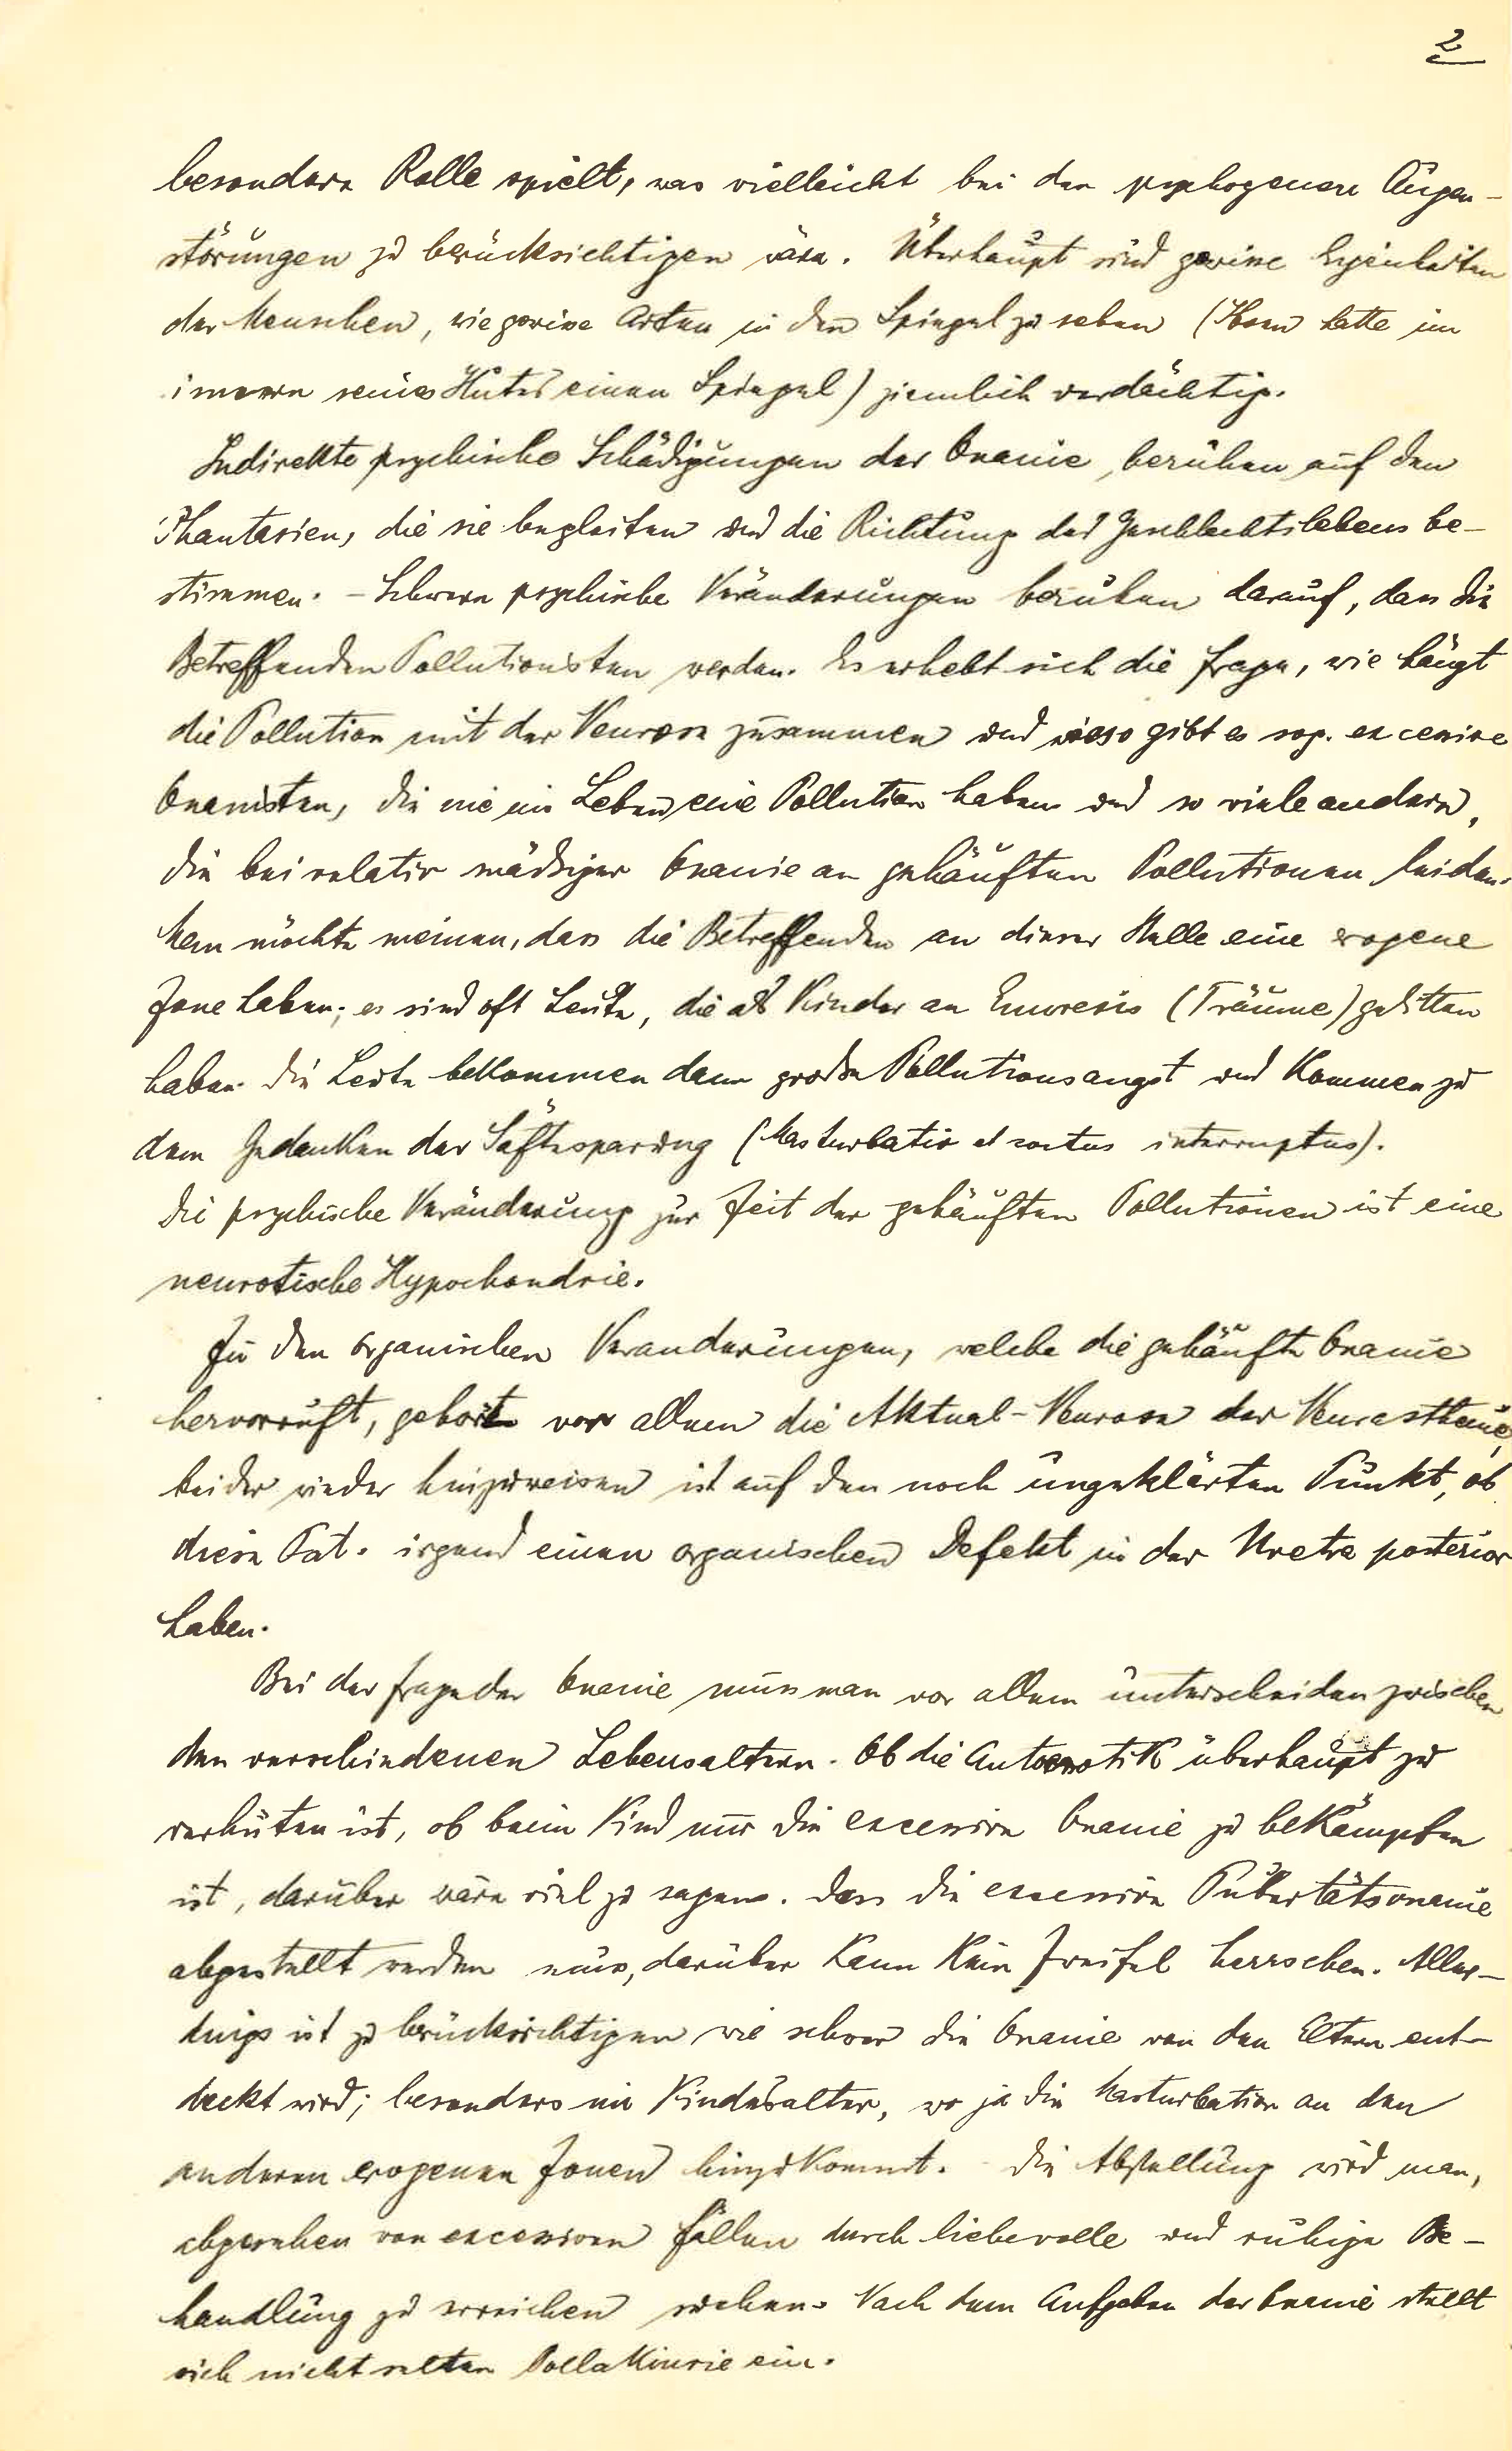 2
besondere Rolle spielt, was vielleicht bei den psychogenen Augen-
störungen zu berücksichtigen wäre. Überhaupt sind gewisse Eigenheiten
der Menschen, wie gewisse Arten in den Spiegel zu sehen (Horn hatte im
innern seines Hutes einen Spiegel) ziemlich verdächtig.
Indirekte psychische Schädigungen der Onanie, beruhen auf den
Phantasien, die sie begleiten und die Richtung des Geschlechtslebens be-
stimmen. – Schwere psychische Veränderungen beruhen darauf, dass die
Betreffenden Pollutionisten werden. Es erhebt sich die Frage, wie hängt
die Pollution mit der Neurose zusammen und wieso gibt es sog. excessive
Onanisten, die nie im Leben eine Pollution haben und so viele andere,
die bei relativ mäßiger Onanie an gehäuften Pollutionen leiden.
Man möchte meinen, dass die Betreffenden an dieser Stelle eine erogene
Zone haben; es sind oft Leute, die als Kinder an Enuresis (Träume) gelitten
haben. Die Leute bekommen dann große Pollutionsangst und Kommen zu
dem Gedanken der Säftesparung (Masturbatio et coitus interruptus).
Die psychische Veränderung zur Zeit der gehäuften Pollutionen ist eine
neurotische Hypochondrie.
Zu den organischen Veranderungen, welche die gehäufte Onanie
hervorruft, gehört vor allem die Aktual-Neurose der Neurasthenie
bei der wieder hinzuweisen ist auf den noch ungeklärten Punkt, ob
diese Pat. irgend einen organischen Defekt in der Uretra posterior
haben.
Bei der Frage der Onanie muss man vor allem unterscheiden zwischen
den verschiedenen Lebensaltern. Ob die Autoerotik überhaupt zu
verhüten ist, ob beim Kind nur die excessive Onanie zu beKämpfen
ist, darüber wäre viel zu sagen. Dass die excessive Pubertätsonanie
abgestellt werden muss, darüber Kann Kein Zweifel herrschen. Aller-
dings ist zu berücksichtigen wie schwer die Onanie von den Eltern ent-
deckt wird; besonders im Kindesalter, wo ja die Masturbation an den
anderen erogenen Zonen hinzuKommt. – Die Abstellung wird man,
abgesehen von excessiven Fällen durch liebevolle und ruhige Be-
handlung zu erreichen suchen. Nach dem Aufgeben der Onanie stellt
sich nicht selten PollaKiurie ein.